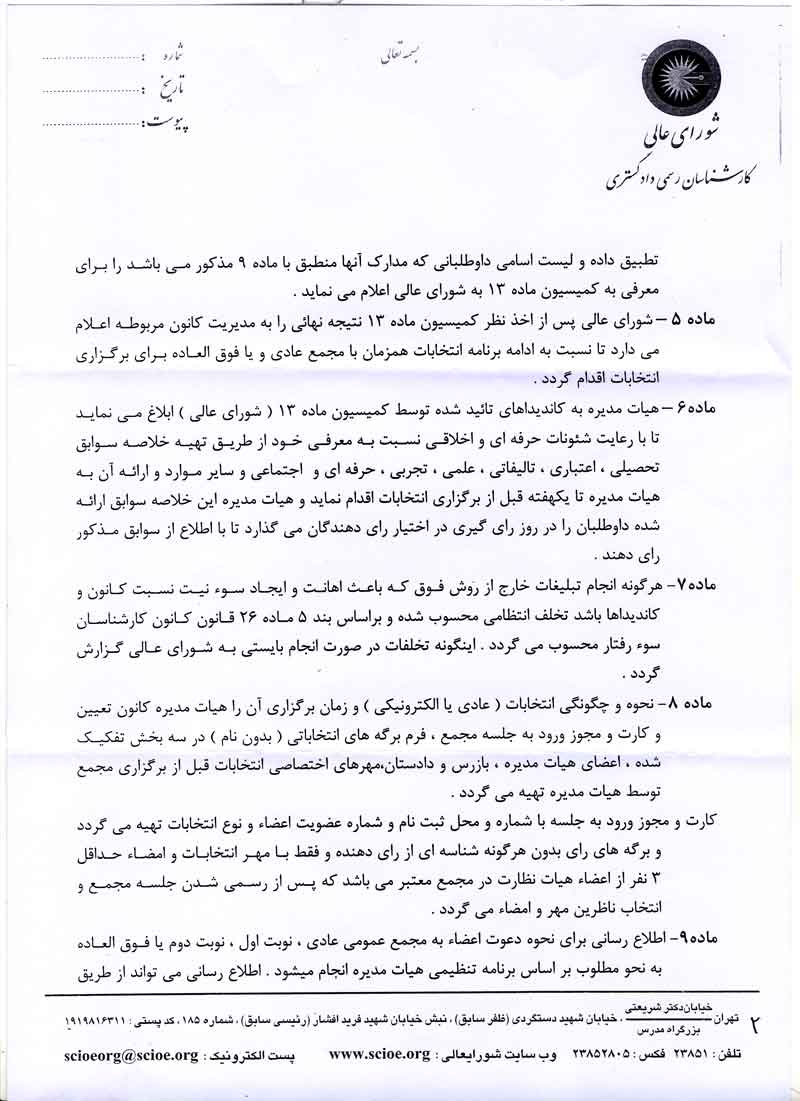 بسمه تعالی
شماره :
تاریخ :
پیوست:
شورای عالی
کارشناسان رسمی دادگستری
تطبیق داده و لیست اسامی داوطلبانی که مدارک آنها منطبق با ماده ۹ مذکور می باشد را برای
معرفی به کمیسیون ماده ۱۳ به شورای عالی اعلام می نماید .
ماده ۵ – شورای عالی پس از اخذ نظر کمیسیون ماده ۱۳ نتیجه نهائی را به مدیریت کانون مربوطه اعلام
می دارد تا نسبت به ادامه برنامه انتخابات همزمان با مجمع عادی و یا فوق العاده برای برگزاری
انتخابات اقدام گردد .
ماده۶ – هیات مدیره به کاندیداهای تائید شده توسط کمیسیون ماده ۱۳ ( شورای عالی ) ابلاغ می نماید
تا با رعایت شئونات حرفه ای و اخلاقی نسبت به معرفی خود از طریق تهیه خلاصه سوابق
تحصیلی ، اعتباری ، تالیفاتی ، علمی ، تجربی ، حرفه ای و اجتماعی و سایر موارد و ارائه آن به
هیات مدیره تا یکهفته قبل از برگزاری انتخابات اقدام نماید و هیات مدیره این خلاصه سوابق ارائه
شده داوطلبان را در روز رای گیری در اختیار رای دهندگان می گذارد تا با اطلاع از سوابق مذکور
رای دهند .
ماده۷- هرگونه انجام تبلیغات خارج از روش فوق که باعث اهانت و ایجاد سوء نیت نسبت کانون و
کاندیداها باشد تخلف انتظامی محسوب شده و براساس بند ۵ ماده ۲۶ قانون کانون کارشناسان
سوء رفتار محسوب می گردد . اینگونه تخلفات در صورت انجام بایستی به شورای عالی گزارش
گردد .
ماده ۸- نحوه و چگونگی انتخابات ( عادی یا الکترونیکی ) و زمان برگزاری آن را هیات مدیره کانون تعیین
و کارت و مجوز ورود به جلسه مجمع ، فرم برگه های انتخاباتی ( بدون نام ) در سه بخش تفکیک
شده ، اعضای هیات مدیره ، بازرس و دادستان،مهرهای اختصاصی انتخابات قبل از برگزاری مجمع
توسط هیات مدیره تهیه می گردد .
کارت و مجوز ورود به جلسه با شماره و محل ثبت نام و شماره عضویت اعضاء و نوع انتخابات تهیه می گردد
و برگه های رای بدون هرگونه شناسه ای از رای دهنده و فقط با مهر انتخابات و امضاء حداقل
۳ نفر از اعضاء هیات نظارت در مجمع معتبر می باشد که پس از رسمی شدن جلسه مجمع و
انتخاب ناظرین مهر و امضاء می گردد .
ماده۹- اطلاع رسانی برای نحوه دعوت اعضاء به مجمع عمومی عادی ، نوبت اول ، نوبت دوم یا فوق العاده
به نحو مطلوب بر اساس برنامه تنظیمی هیات مدیره انجام میشود . اطلاع رسانی می تواند از طریق
۲
تهران – خیابان دکتر شریعتی بزرگراه مدرس ، خیابان شهید دستگردی (ظفر سابق) ، نبش خیابان شهید فرید افشار (رئیسی سابق) ، شماره ۱۸۵ ، کد پستی : ۱۹۱۹۸۱۶۳۱۱
تلفن : ۲۳۸۵۱ فکس : ۲۳۸۵۲۸۰۵ وب سایت شورایعالی : www.scioe.org پست الکترونیک : scioeorg@scioe.org